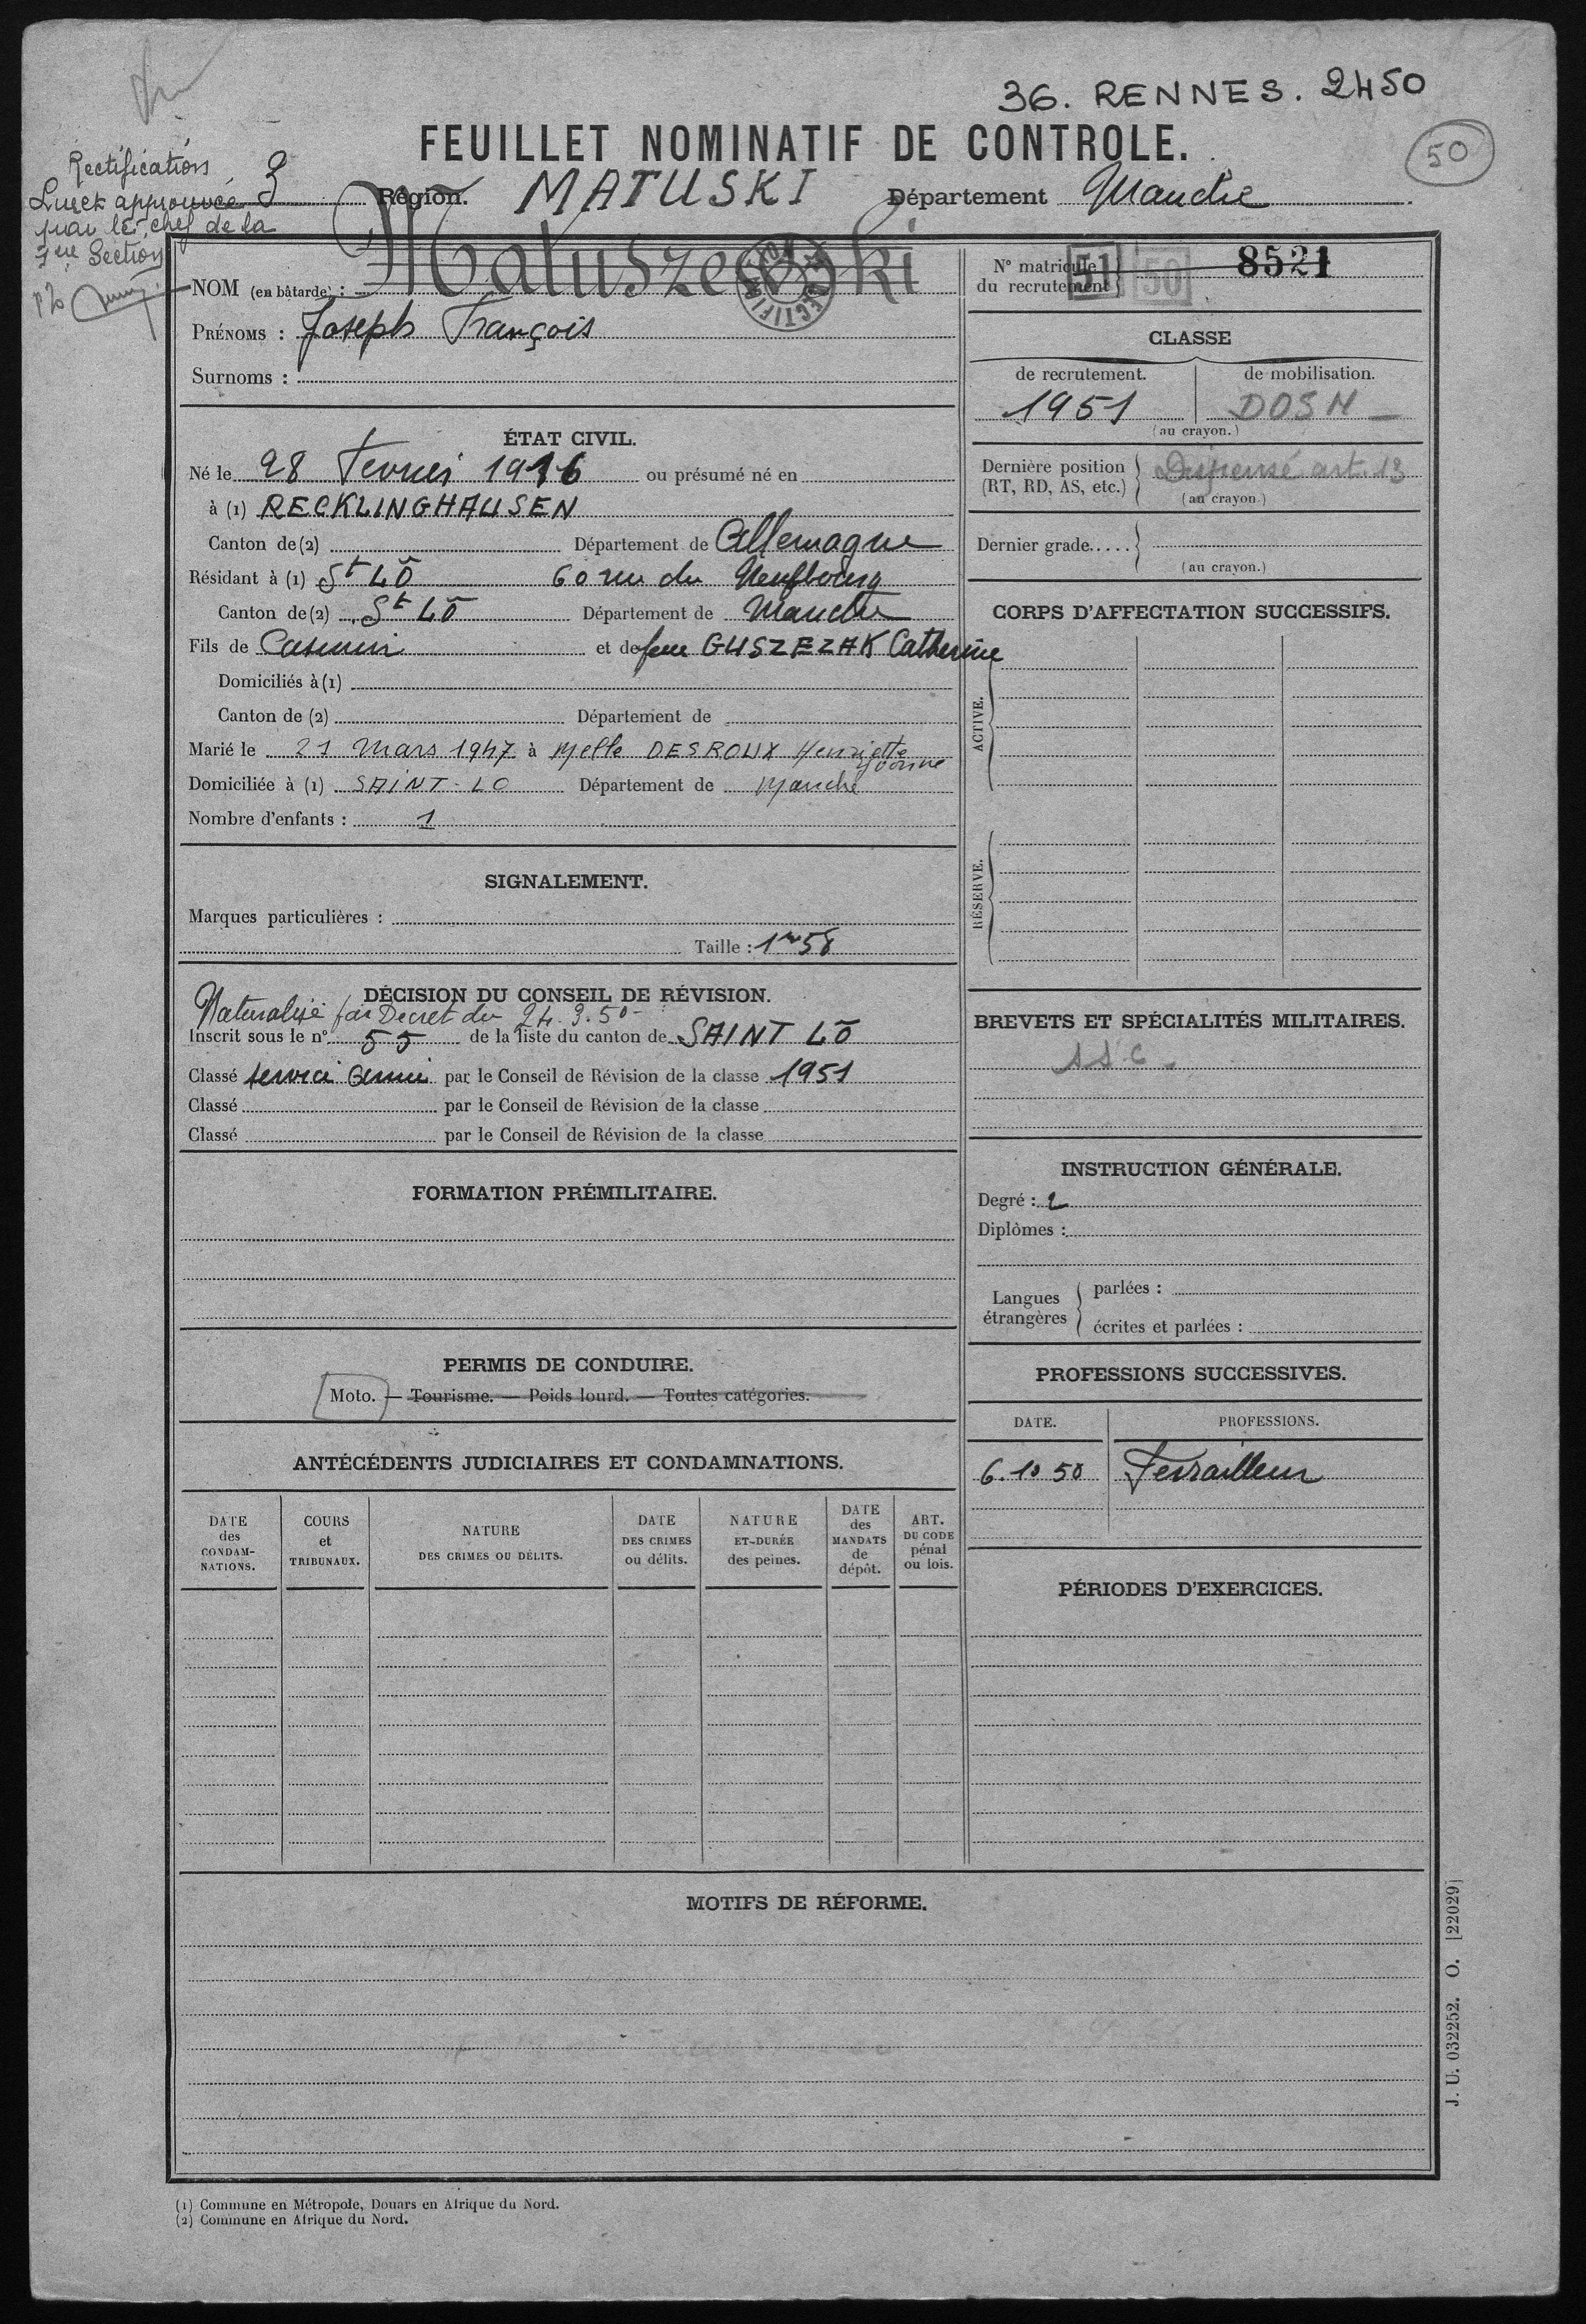 36. RENNES. 2450
FEUILLET NOMINATIF DE CONTROLE.
50
Rectifications
approuvée
par le chef de la
Section
3 Région. MATUSKI Département Manche
NOM (en bâtarde) : Matuszewski
RECTIFICATION
PRÉNOMS : Joseph François
Surnoms :
ÉTAT CIVIL.
Né le 28 Fevrier 1916 ou présumé né en
à (1) RECKLINGHAUSEN
Canton de (2) Département de Allemagne
Résidant à (1) St LÔ 60 rue du Neufbourg
Canton de (2) St LÔ Département de Manche
Fils de Casimir et de feue GUSZEZAK Catherine
Domiciliés à (1)
Canton de (2) Département de
Marié le 21 Mars 1947 à Melle DESROUX Henriette
Yvonne
Domiciliée à (1) SAINT-LO Département de Manche
Nombre d'enfants : 1
SIGNALEMENT.
Marques particulières :
Taille : 1m58
DÉCISION DU CONSEIL DE RÉVISION.
Naturalisé par Decret du 24.3.50
Inscrit sous le n° 55 de la liste du canton de SAINT LÔ
Classé service Armé par le Conseil de Révision de la classe 1951
Classé par le Conseil de Révision de la classe
Classé par le Conseil de Révision de la classe
FORMATION PRÉMILITAIRE.
PERMIS DE CONDUIRE.
Moto. — Tourisme. — Poids lourd. — Toutes catégories.
ANTÉCÉDENTS JUDICIAIRES ET CONDAMNATIONS.
DATE des CONDAM-NATIONS.
COURS et TRIBUNAUX.
NATURE DES CRIMES OU DÉLITS.
DATE DES CRIMES ou délits.
NATURE ET DURÉE des peines.
DATE des MANDATS de dépôt.
ART. DU CODE pénal ou lois.
N° matricule du recrutement 51 50 8521
CLASSE
de recrutement. de mobilisation.
1951 DOSN
(au crayon.)
Dernière position (RT, RD, AS, etc.) Dispensé art. 13
(au crayon.)
Dernier grade.....
(au crayon.)
CORPS D'AFFECTATION SUCCESSIFS.
ACTIVE.
RÉSERVE.
BREVETS ET SPÉCIALITÉS MILITAIRES.
SSC.
INSTRUCTION GÉNÉRALE.
Degré : 2
Diplômes :
Langues étrangères
parlées :
écrites et parlées :
PROFESSIONS SUCCESSIVES.
DATE. PROFESSIONS.
6.10 50 Ferrailleur
PÉRIODES D'EXERCICES.
MOTIFS DE RÉFORME.
(1) Commune en Métropole, Douars en Afrique du Nord.
(2) Commune en Afrique du Nord.
J. U. 032252. O. [22029]